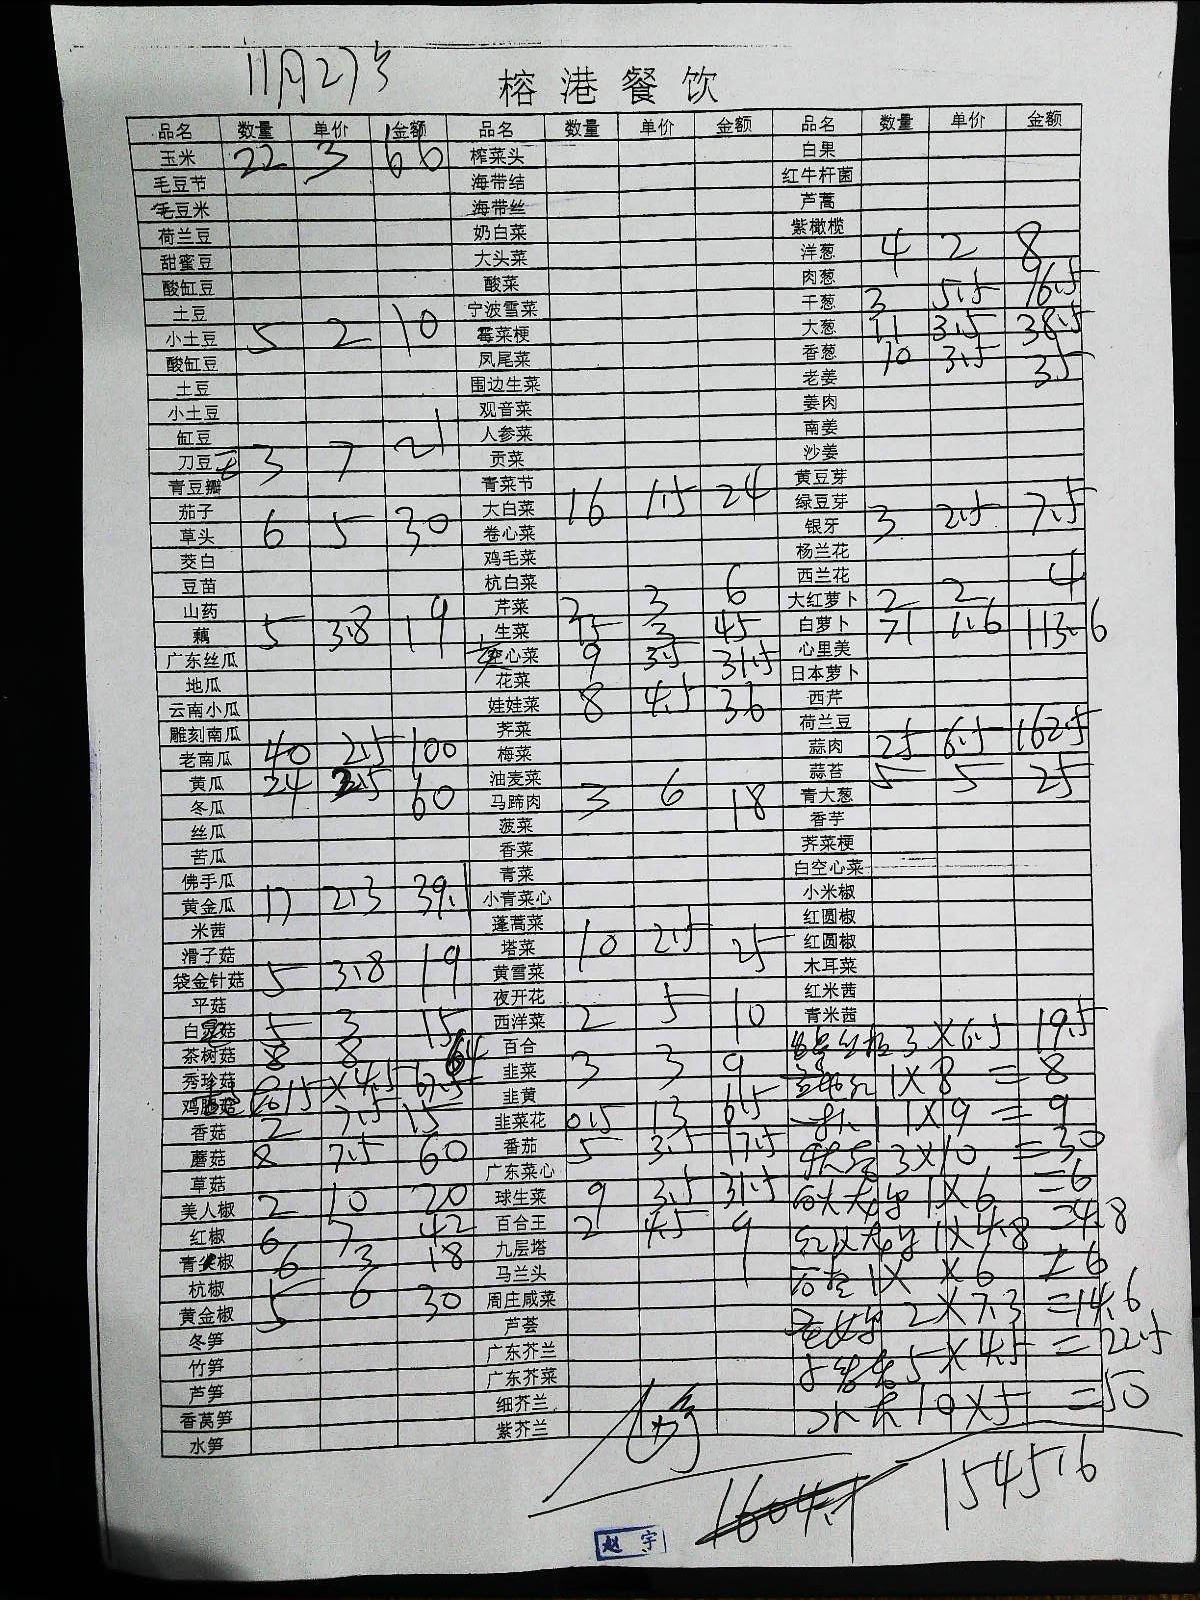 11月27号
榕港餐饮
品名 数量 单价 金额 品名 数量 单价 金额 品名 数量 单价 金额
玉米 22 3 66 榨菜头 白果
毛豆节 海带结 红牛杆菌
毛豆米 海带丝 芦蒿
荷兰豆 奶白菜 紫橄榄
甜蜜豆 大头菜 洋葱 4 2 8
酸缸豆 酸菜 肉葱
土豆 宁波雪菜 干葱 3 5.5 16.5
小土豆 5 2 10 霉菜梗 大葱 11 3.5 38.5
酸缸豆 凤尾菜 香葱 10 3.5 35
土豆 围边生菜 老姜
小土豆 观音菜 姜肉
缸豆 人参菜 南姜
刀豆 3 7 21 贡菜 沙姜
青豆瓣 青菜节 黄豆芽
茄子 大白菜 16 1.5 24 绿豆芽
草头 6 5 30 卷心菜 银牙 3 2.5 7.5
茭白 鸡毛菜 杨兰花
豆苗 杭白菜 西兰花
山药 芹菜 2 3 6 大红萝卜 2 2 4
藕 5 3.8 19 生菜 15 3 45 白萝卜 71 1.6 113.6
广东丝瓜 空心菜 9 3.5 31.5 心里美
地瓜 花菜 日本萝卜
云南小瓜 娃娃菜 8 4.5 36 西芹
雕刻南瓜 荠菜 荷兰豆
老南瓜 40 2.5 100 梅菜 蒜肉 25 6.5 162.5
黄瓜 24 2.5 60 油麦菜 蒜苔 5 5 25
冬瓜 马蹄肉 3 6 18 青大葱
丝瓜 菠菜 香芋
苦瓜 香菜 荠菜梗
佛手瓜 青菜 白空心菜
黄金瓜 17 2.3 39.1 小青菜心 小米椒
米茜 蓬蒿菜 红圆椒
滑子菇 塔菜 10 2.5 25 红圆椒
袋金针菇 5 3.8 19 黄雪菜 木耳菜
平菇 夜开花 红米茜
白菇 5 3 15 西洋菜 2 5 10 青米茜
茶树菇 8 8 64 百合 3 × 6.5 19.5
秀珍菇 15 × 4.5 67.5 韭菜 3 3 9 1 × 8 = 8
鸡腿菇 韭黄 1 × 9 = 9
香菇 2 7.5 15 韭菜花 0.5 13 6.5 3 × 10 = 30
蘑菇 8 7.5 60 番茄 5 3.5 17.5 1 × 6 = 6
草菇 广东菜心 1 × 4.8 = 4.8
美人椒 2 10 20 球生菜 9 3.5 31.5 1 × 6 = 6
红椒 6 7 42 百合王 2 4.5 9 2 × 7.3 = 14.6
青尖椒 6 3 18 九层塔 5 × 4.5 = 22.5
杭椒 马兰头 10 × 5 = 50
黄金椒 5 6 30 周庄咸菜
冬笋 芦荟
竹笋 广东芥兰
芦笋 广东芥菜
香莴笋 细芥兰
水笋 紫芥兰
1604.1 1545.6
赵宇